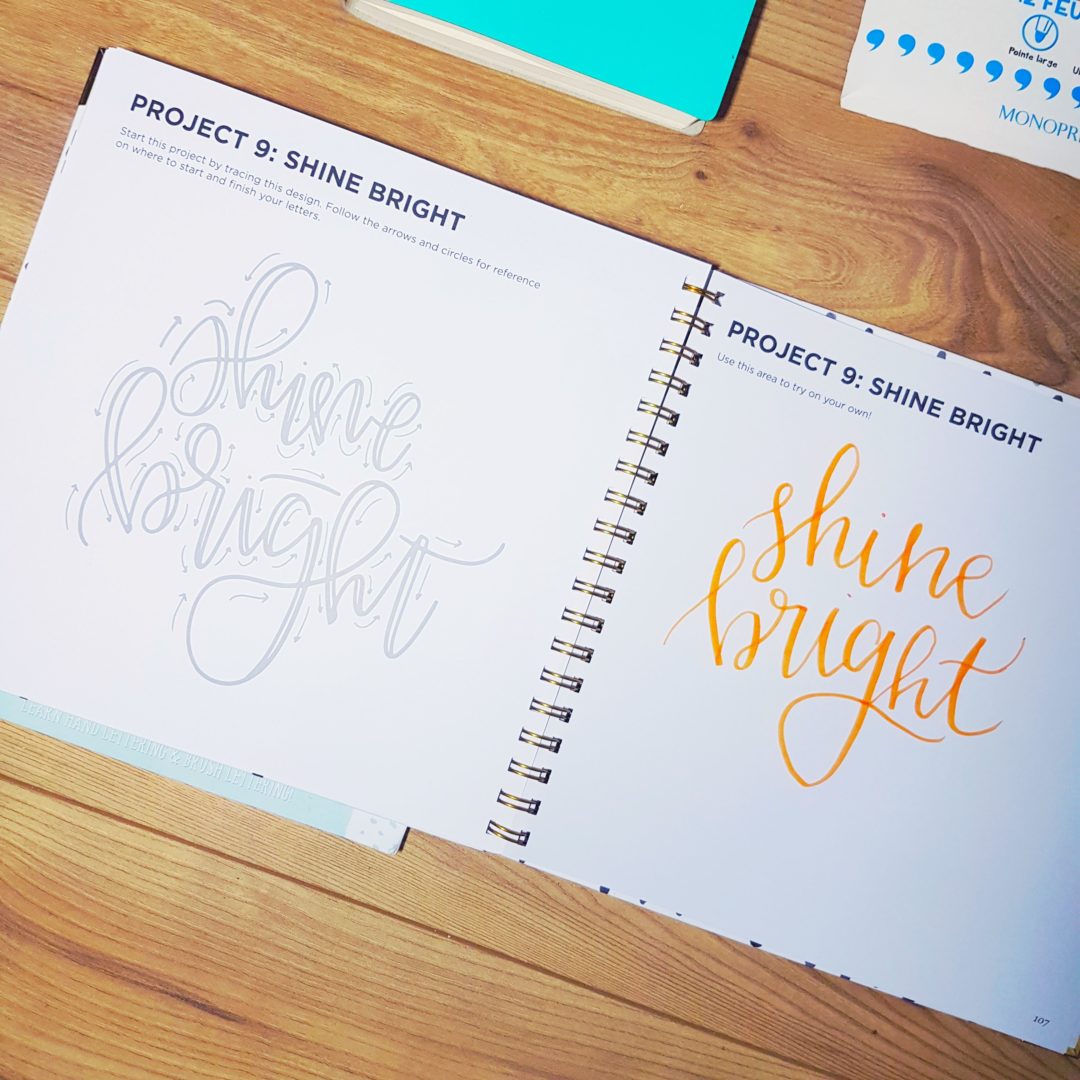 PROJECT 9: SHINE BRIGHT
Start this project by tracing this design. Follow the arrows and circles for reference
on where to start and finish your letters.
shine
bright
LEARN HAND LETTERING & BRUSH LETTERING!
PROJECT 9: SHINE BRIGHT
Use this area to try on your own!
shine
bright
107
Pointe large